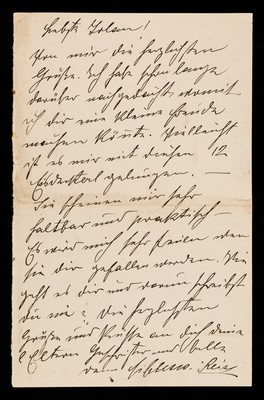 Liebste Jolan!
Von mir die herzlichsten
Grüße. Ich habe schon lange
darüber nachgedacht womit
ich dir eine kleine Freude
machen könnte. Vielleicht
ist es mir mit diesen 12
gelungen. —
Sie scheinen mir sehr
haltbar und praktisch —
Es wird mich sehr freuen wenn
sie dir gefallen werden. Wie
geht es dir und warum schreibst
du nie? Die herzlichsten
Grüße und Küsse an dich deine
l. Eltern Geschwister und